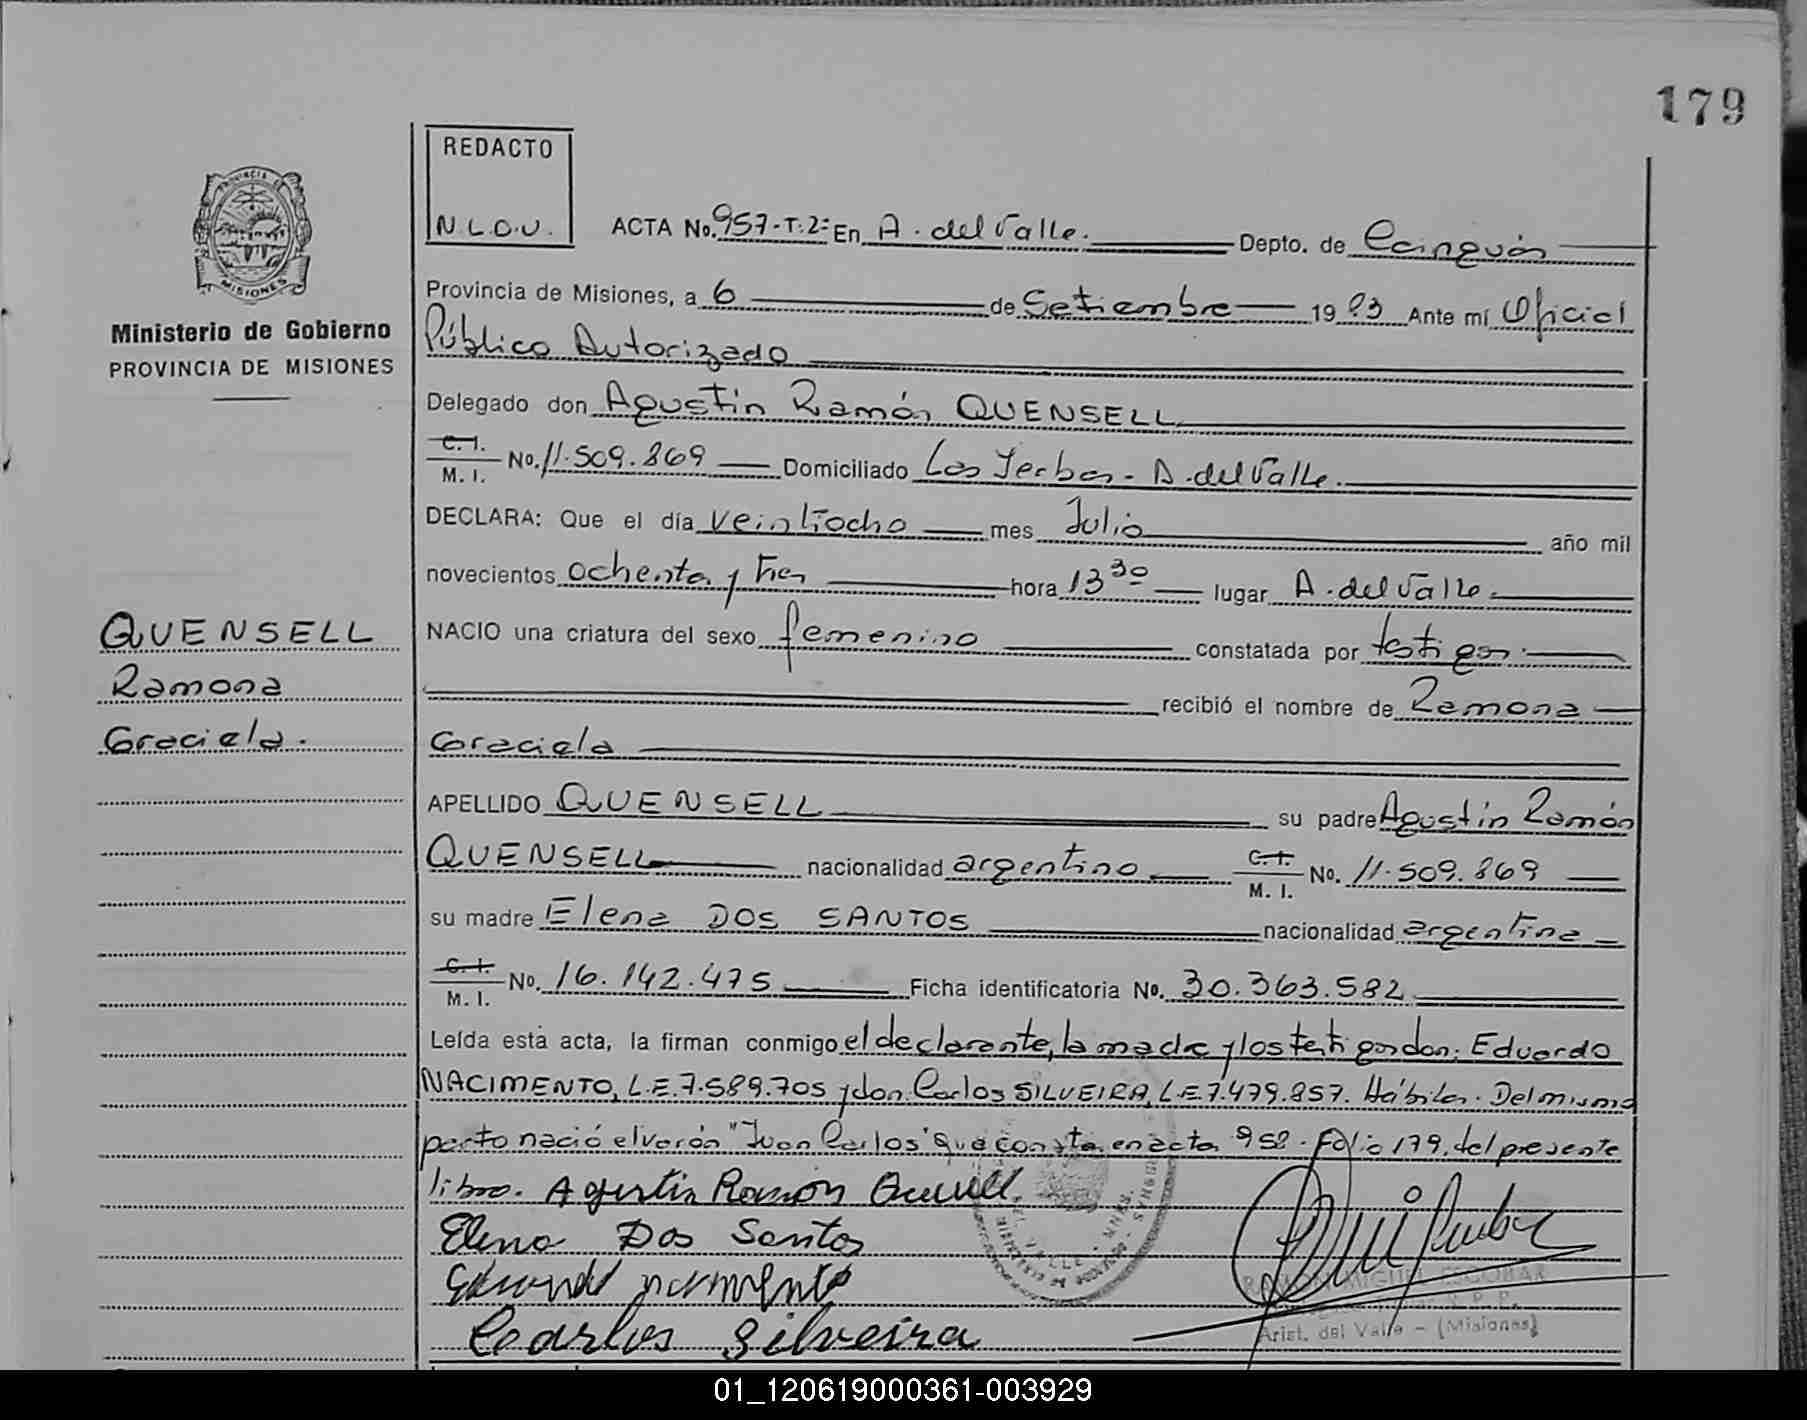 179
REDACTO
N.L.O.U.
ACTA No. 957-T.2= En A. del Valle. Depto. de Cainguás
PROVINCIA DE
MISIONES
Provincia de Misiones, a 6 de Setiembre 1983 Ante mí Oficial
Público Autorizado
Ministerio de Gobierno
PROVINCIA DE MISIONES
Delegado don Agustin Ramón QUENSELL
C. I. M. I. No. 11.509.869 Domiciliado Las Yerbas - A. del Valle.
DECLARA: Que el día veintiocho mes Julio año mil
novecientos ochenta y tres hora 13 30 lugar A. del Valle.
QUENSELL
Ramona
Graciela.
NACIO una criatura del sexo femenino constatada por testigos.
recibió el nombre de Ramona
Graciela
APELLIDO QUENSELL su padre Agustin Ramón
QUENSELL nacionalidad argentino C. I. M. I. No. 11.509.869
su madre Elena DOS SANTOS nacionalidad argentina
C. I. M. I. No. 16.142.475 Ficha identificatoria No. 30.363.582
Leída esta acta, la firman conmigo el declarante, la madre y los testigos don: Eduardo
NACIMENTO, L.E. 7.589.705 y don Carlos SILVEIRA, L.E. 7.479.857. Hábiles. Del mismo
parto nació el varón "Juan Carlos" que consta en acta 958 - Folio 179, del presente
libro. Agustin Ramón
Elena Dos Santos
nacimento
Carlos Silveira
RAMON MIGUEL ESCOBAR
Arist. del Valle - (Misiones)
01_120619000361-003929